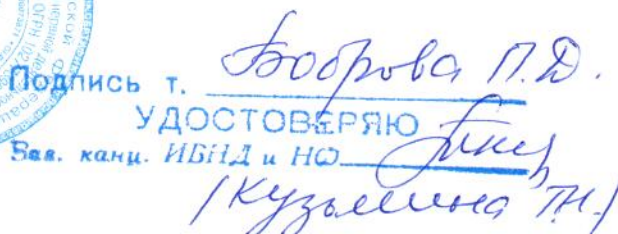 Подпись т. Боброва П.Д.
УДОСТОВЕРЯЮ
Зав. канц. ИВНД и НФ
/Кузьмина Т.Н./